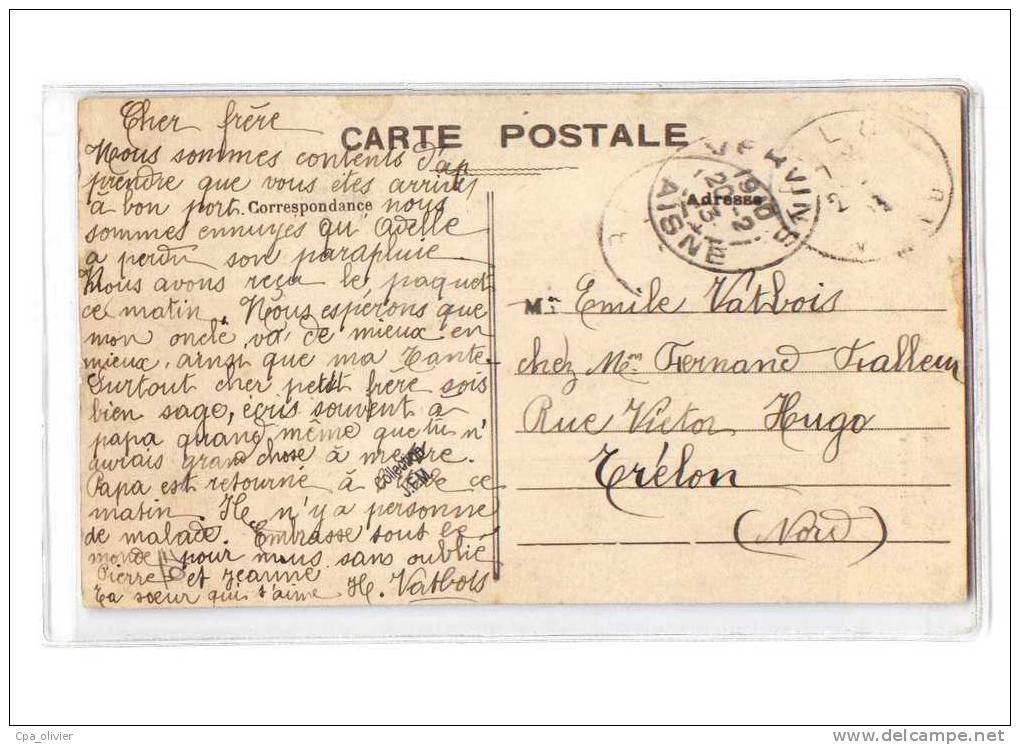 CARTE POSTALE
Correspondance
Adresse
Cher frère
Nous sommes contents d'ap
prendre que vous êtes arrivés
à bon port. nous
sommes ennuyés qu'Adelle
a perdu son parapluie.
Nous avons reçu le paquet
ce matin. Nous espérons que
mon oncle va de mieux en
mieux, ainsi que ma Tante.
Surtout cher petit frère sois
bien sage, écris souvent à
papa quand même que tu n'
aurais grand chose à mettre.
Papa est retourné à ce
matin. Il n'y a personne
de malade. Embrasse tous le
monde pour nous sans oublié
Pierre et Jeanne
Ta soeur qui t'aime H. Vatbois
Collection
J.F.M.
VERVINS
1910
20-2
AISNE
Mr Emile Vatbois
chez Mme Fernand
Rue Victor Hugo
Trélon
(Nord)
Cpa_olivier
www.delcampe.net